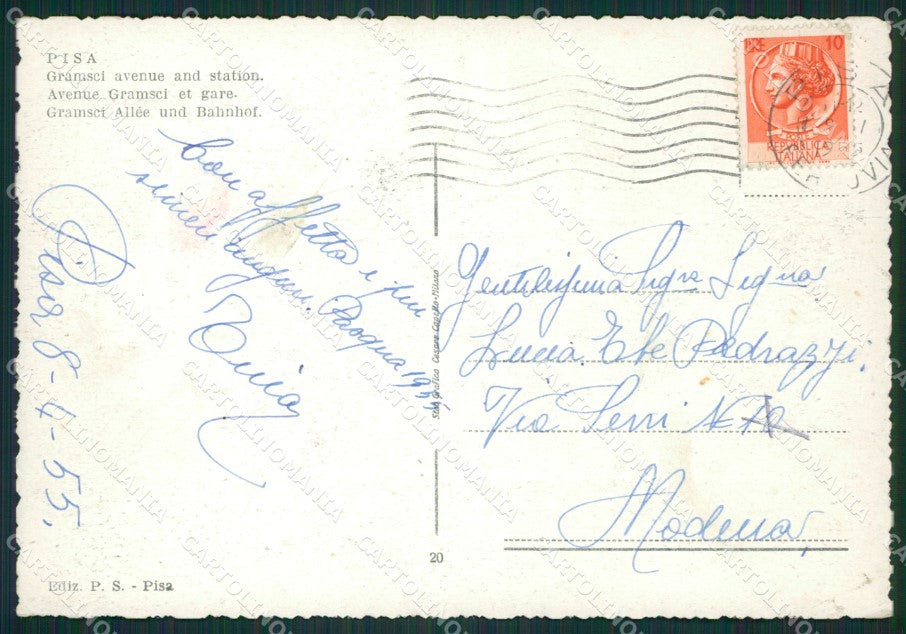 PISA
Gramsci avenue and station.
Avenue Gramsci et gare.
Gramsci Allée und Bahnhof.
Con affetto i più
sinceri auguri. Pasqua 1955
Pisa 8-4-55.
10
REPVBBLICA
ITALIANA
Gentilissima Sigra Signa
Lucia Ebe Pedrazzi.
Via Servi N
Modena,
Stab. Grafico Cesare Capello-Milano
20
Ediz. P. S. - Pisa
CARTOLINOMANIA